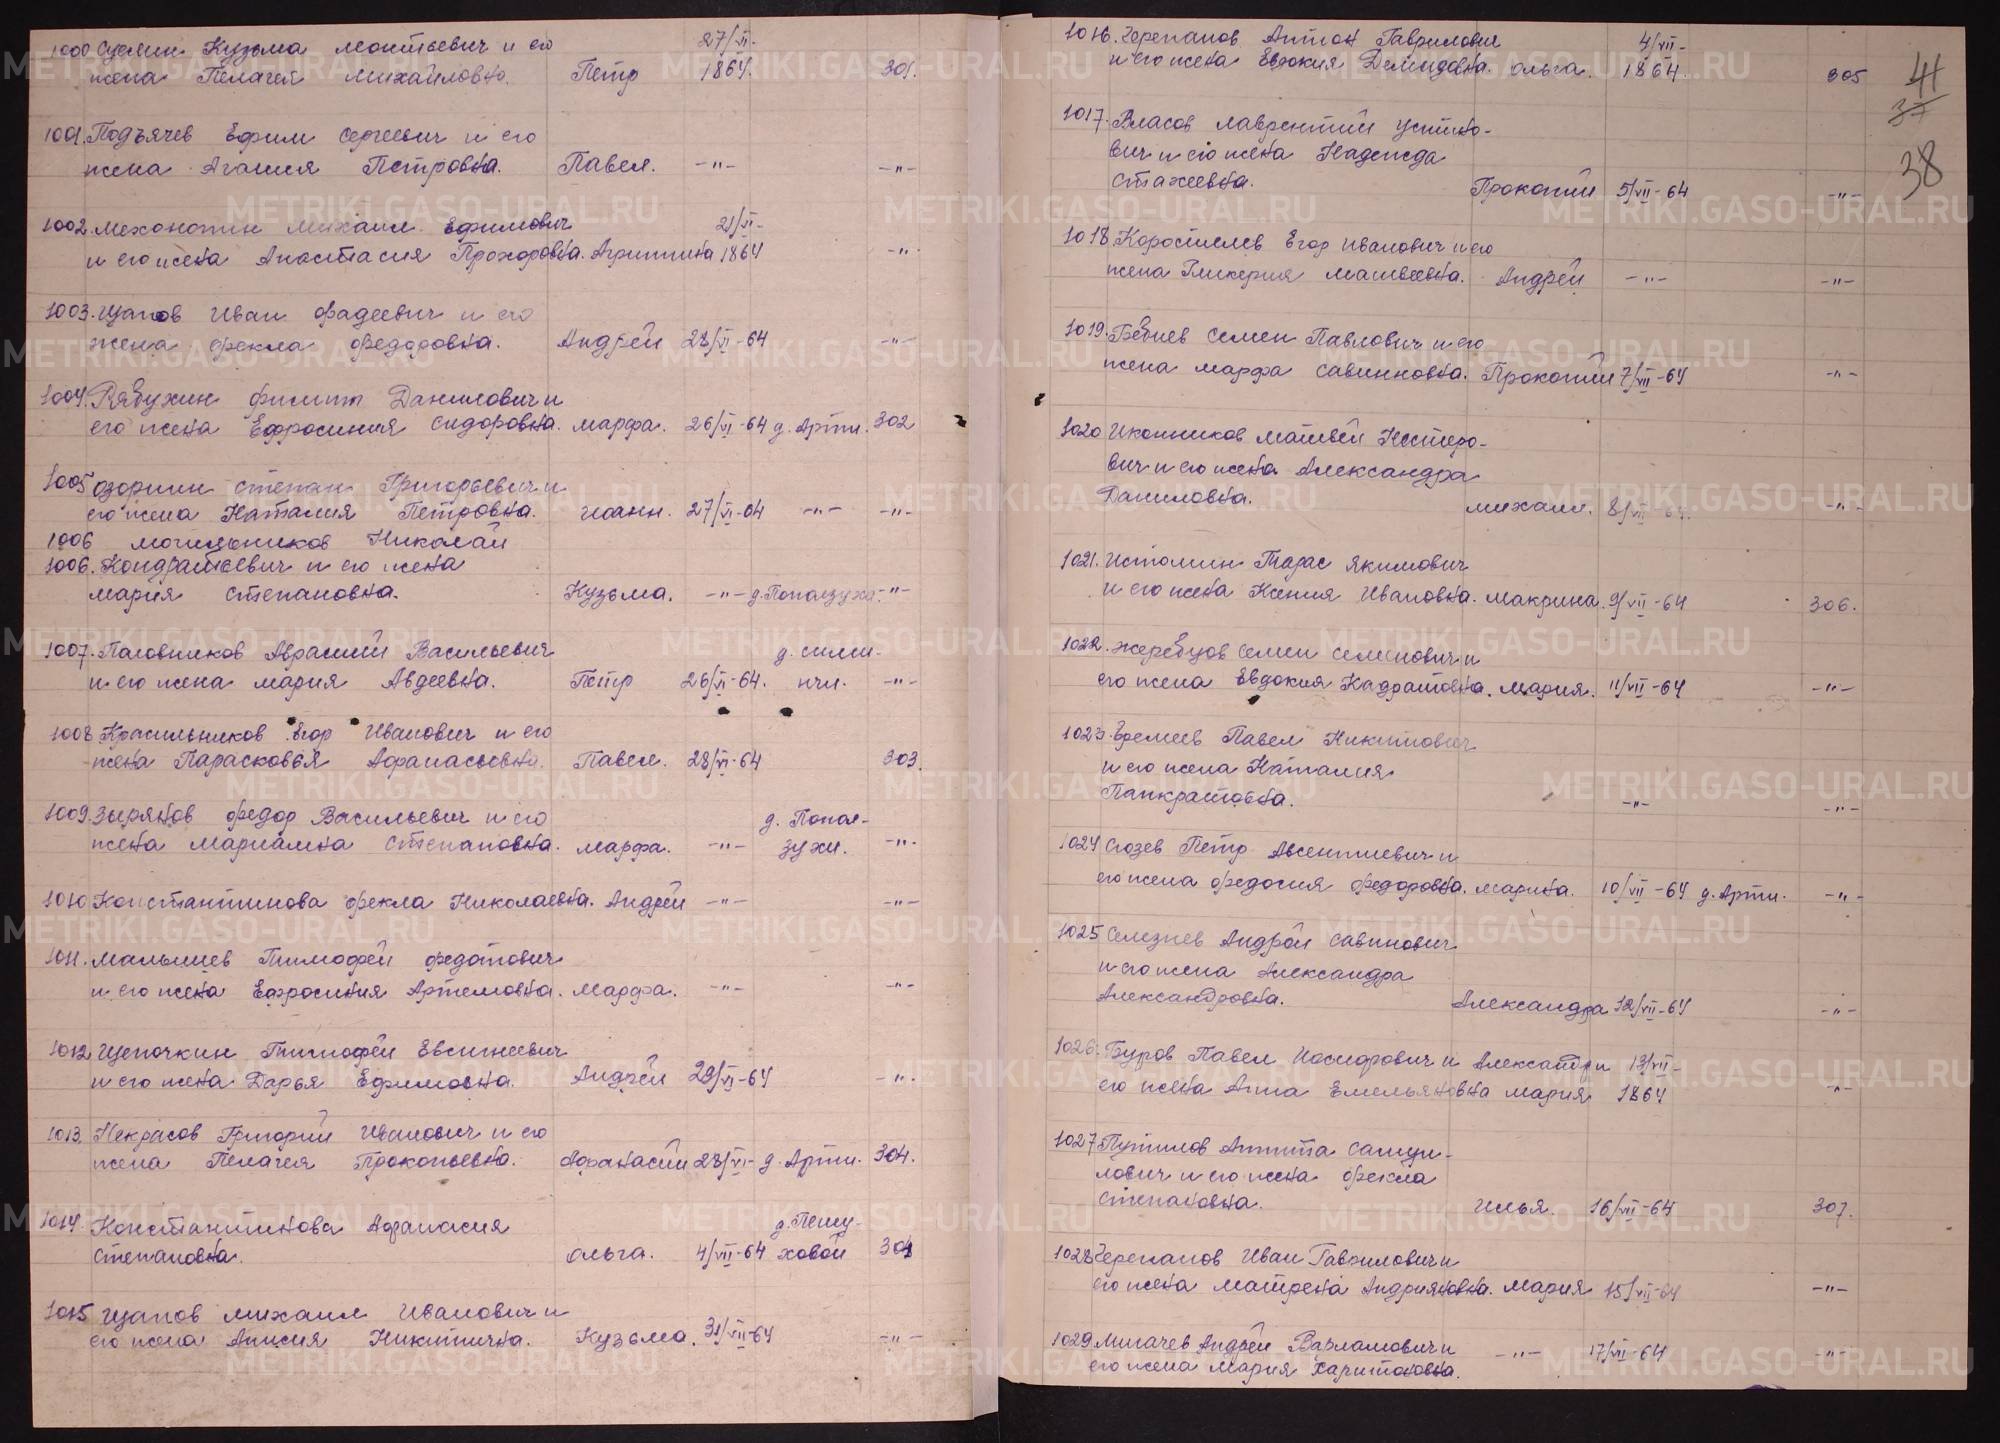 1000 Суслин Кузьма Монтьевич и его 27/VI-
жена Пелагея Михайловна. Петр 1864. 301.
1001. Подъячев Ефим Сергеевич и его
жена Агания Петровна. Павел. -"- -"-
1002. Мехоношин Михаил Ефимович 21/VI-
и его жена Анастасия Прохоровна. Агриппина 1864 -"-
1003. Щапов Иван Фадеевич и его
жена Фекла Федоровна. Андрей 28/VI-64 -"-
1004. Рябухин Филипп Данилович и
его жена Ефросиния Сидоровна. Марфа. 26/VI-64 д. Арти. 302
1005 Озорнин Степан Григорьевич и
его жена Наталия Петровна. Иоанн. 27/VI-64 -"- -"-
1006 Могильников Николай
1006. Кондратьевич и его жена
Мария Степановна. Кузьма. -"- д. Поползуха. -"-
1007. Паговников Аврамий Васильевич д. Сими-
и его жена Мария Авдеевна. Петр 26/VI-64. нчи. -"-
1008 Красильников Егор Иванович и его
жена Парасковья Афанасьевна. Павел. 28/VI-64 303.
1009. Зырянов Федор Васильевич и его д. Попол-
жена Мариамна Степановна. Марфа. -"- зухи. -"-
1010 Константинова Фекла Николаевна. Андрей -"- -"-
1011. Малышев Тимофей Федотович
и его жена Ефросиния Артемовна. Марфа. -"- -"-
1012 Щепочкин Тимофей Евсигнеевич
и его жена Дарья Ефимовна. Андрей 29/VI-64 -"-
1013. Некрасов Григорий Иванович и его
жена Пелагея Прокопьевна. Афанасий 28/VI- д. Арти. 304.
1014 Константинова Афанасия д. Пету-
Степановна. Ольга. 4/VII-64 ховой 304
1015 Щапов Михаил Иванович и
его жена Анисия Никитична. Кузьма. 31/VII-64 -"-
1016. Черепанов Антон Гаврилович 4/VII-
и его жена Евдокия Демидовна. Ольга. 1864. 305
41
37
38
1017. Власов Лаврентий Устино-
вич и его жена Надежда
Стахеевна. Прокопий 5/VII-64 -"-
1018. Коростелев Егор Иванович и его
жена Гликерия Матвеевна. Андрей -"- -"-
1019. Бебнев Семен Павлович и его
жена Марфа Савинновна. Прокопий 7/VII-64 -"-
1020 Иконников Матвей Нестеро-
вич и его жена Александра
Даниловна. Михаил. 8/VII-64. -"-
1021. Истомин Тарас Якимович
и его жена Ксения Ивановна. Макрина. 9/VII-64 306.
1022. Жеребцов Семен Семенович и
его жена Евдокия Кадратовна. Мария. 11/VII-64 -"-
1023. Еремеев Павел Никитович
и его жена Наталия
Панкратовна. -"- -"-
1024 Сюзев Петр Авсентиевич и
его жена Федосия Федоровна. Марина. 10/VII-64 д. Арти. -"-
1025 Селезнев Андрей Савинович
и его жена Александра
Александровна. Александра 12/VII-64 -"-
1026. Буров Павел Иосифович и Александр и 13/VII-
его жена Анна Емельяновна Мария 1864 -"-
1027 Путилов Аппита Самуи-
лович и его жена Фекла
Степановна. Илья. 16/VII-64 307.
1028 Черепанов Иван Гаврилович и
его жена Матрена Андрияновна. Мария 15/VII-64 -"-
1029 Лигачев Андрей Варламович и -"- 17/VII-64 -"-
его жена Мария Харитоновна.